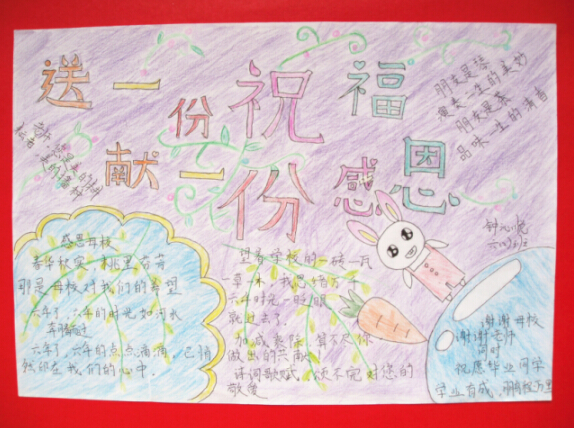 送一份祝福
献一份感恩
朋友是琴
演奏一生的美妙
朋友是茶
品味一生的清香
六(3)班
感恩母校
春华秋实,桃里
那是母校对我们的希望
六年了,六年的时光,如流水
六年了,六年的点点滴滴,已悄
然印在我们的心中.
望着学校的一砖一瓦
一草一木,我思绪万千
六年时光一眨眼
就过去了.
加减乘除,算不尽你
做出的贡献
诗词歌赋,颂不完对您的
敬爱
谢谢母校
谢谢老师
同时
祝愿毕业同学
学业有成,鹏程万里